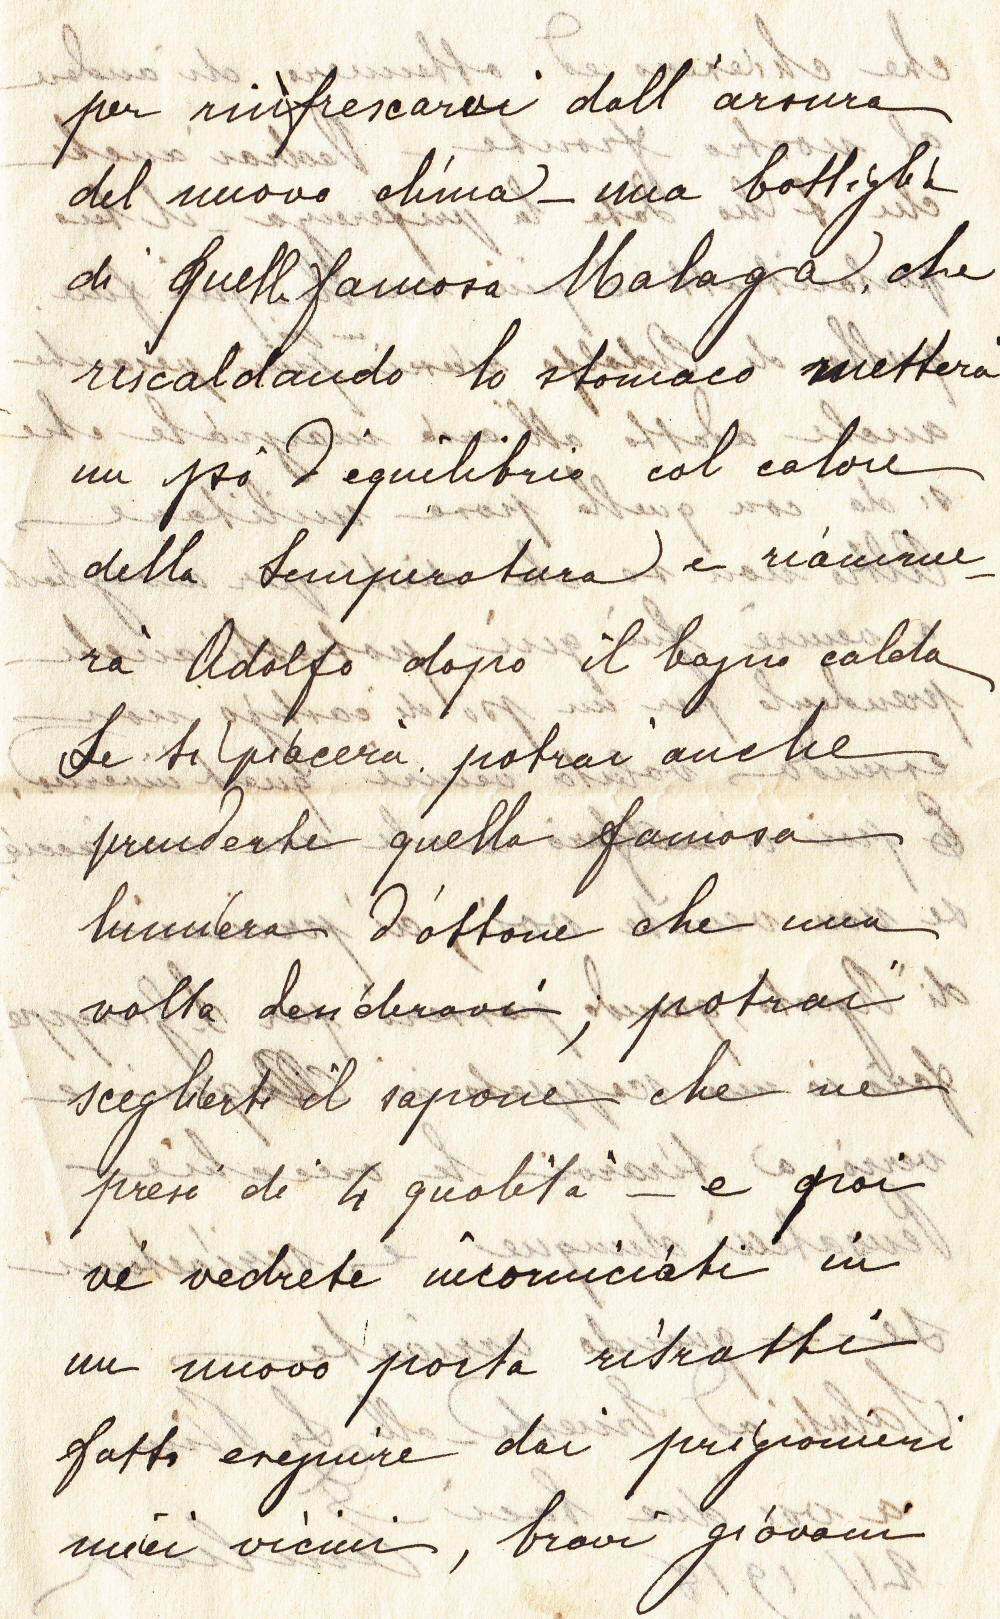 per rinfrescarvi dall'arsura
del nuovo clima – una bottiglia
di quell famosa Malaga, che
riscaldando lo stomaco metterà
un pò d'equilibrio col calore
della temperatura e rianime-
rà Adolfo dopo il bagno caldo
Se ti piacerà potrai anche
prenderti quella famosa
lumiera d'ottone che una
volta desideravi; potrai
sceglierti il sapone che ne
presi di 4 qualità – e poi
vi vedrete incorniciati in
un nuovo porta ritratti
fatto eseguire dai prigionieri
miei vicini, bravi giovani